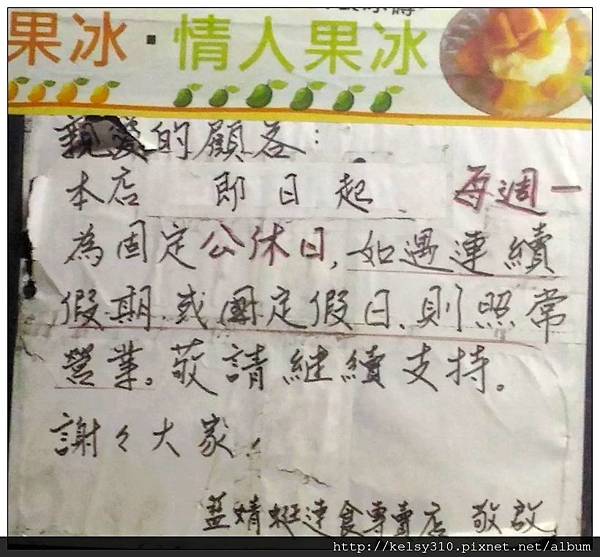 果冰·情人果冰
親愛的顧客：
本店 即日起 每週一
為固定公休日，如遇連續
假期或國定假日、則照常
營業。敬請継續支持。
謝々大家，
藍蜻蜓速食專賣店 敬啟
http://kelsy310.pixnet.net/album